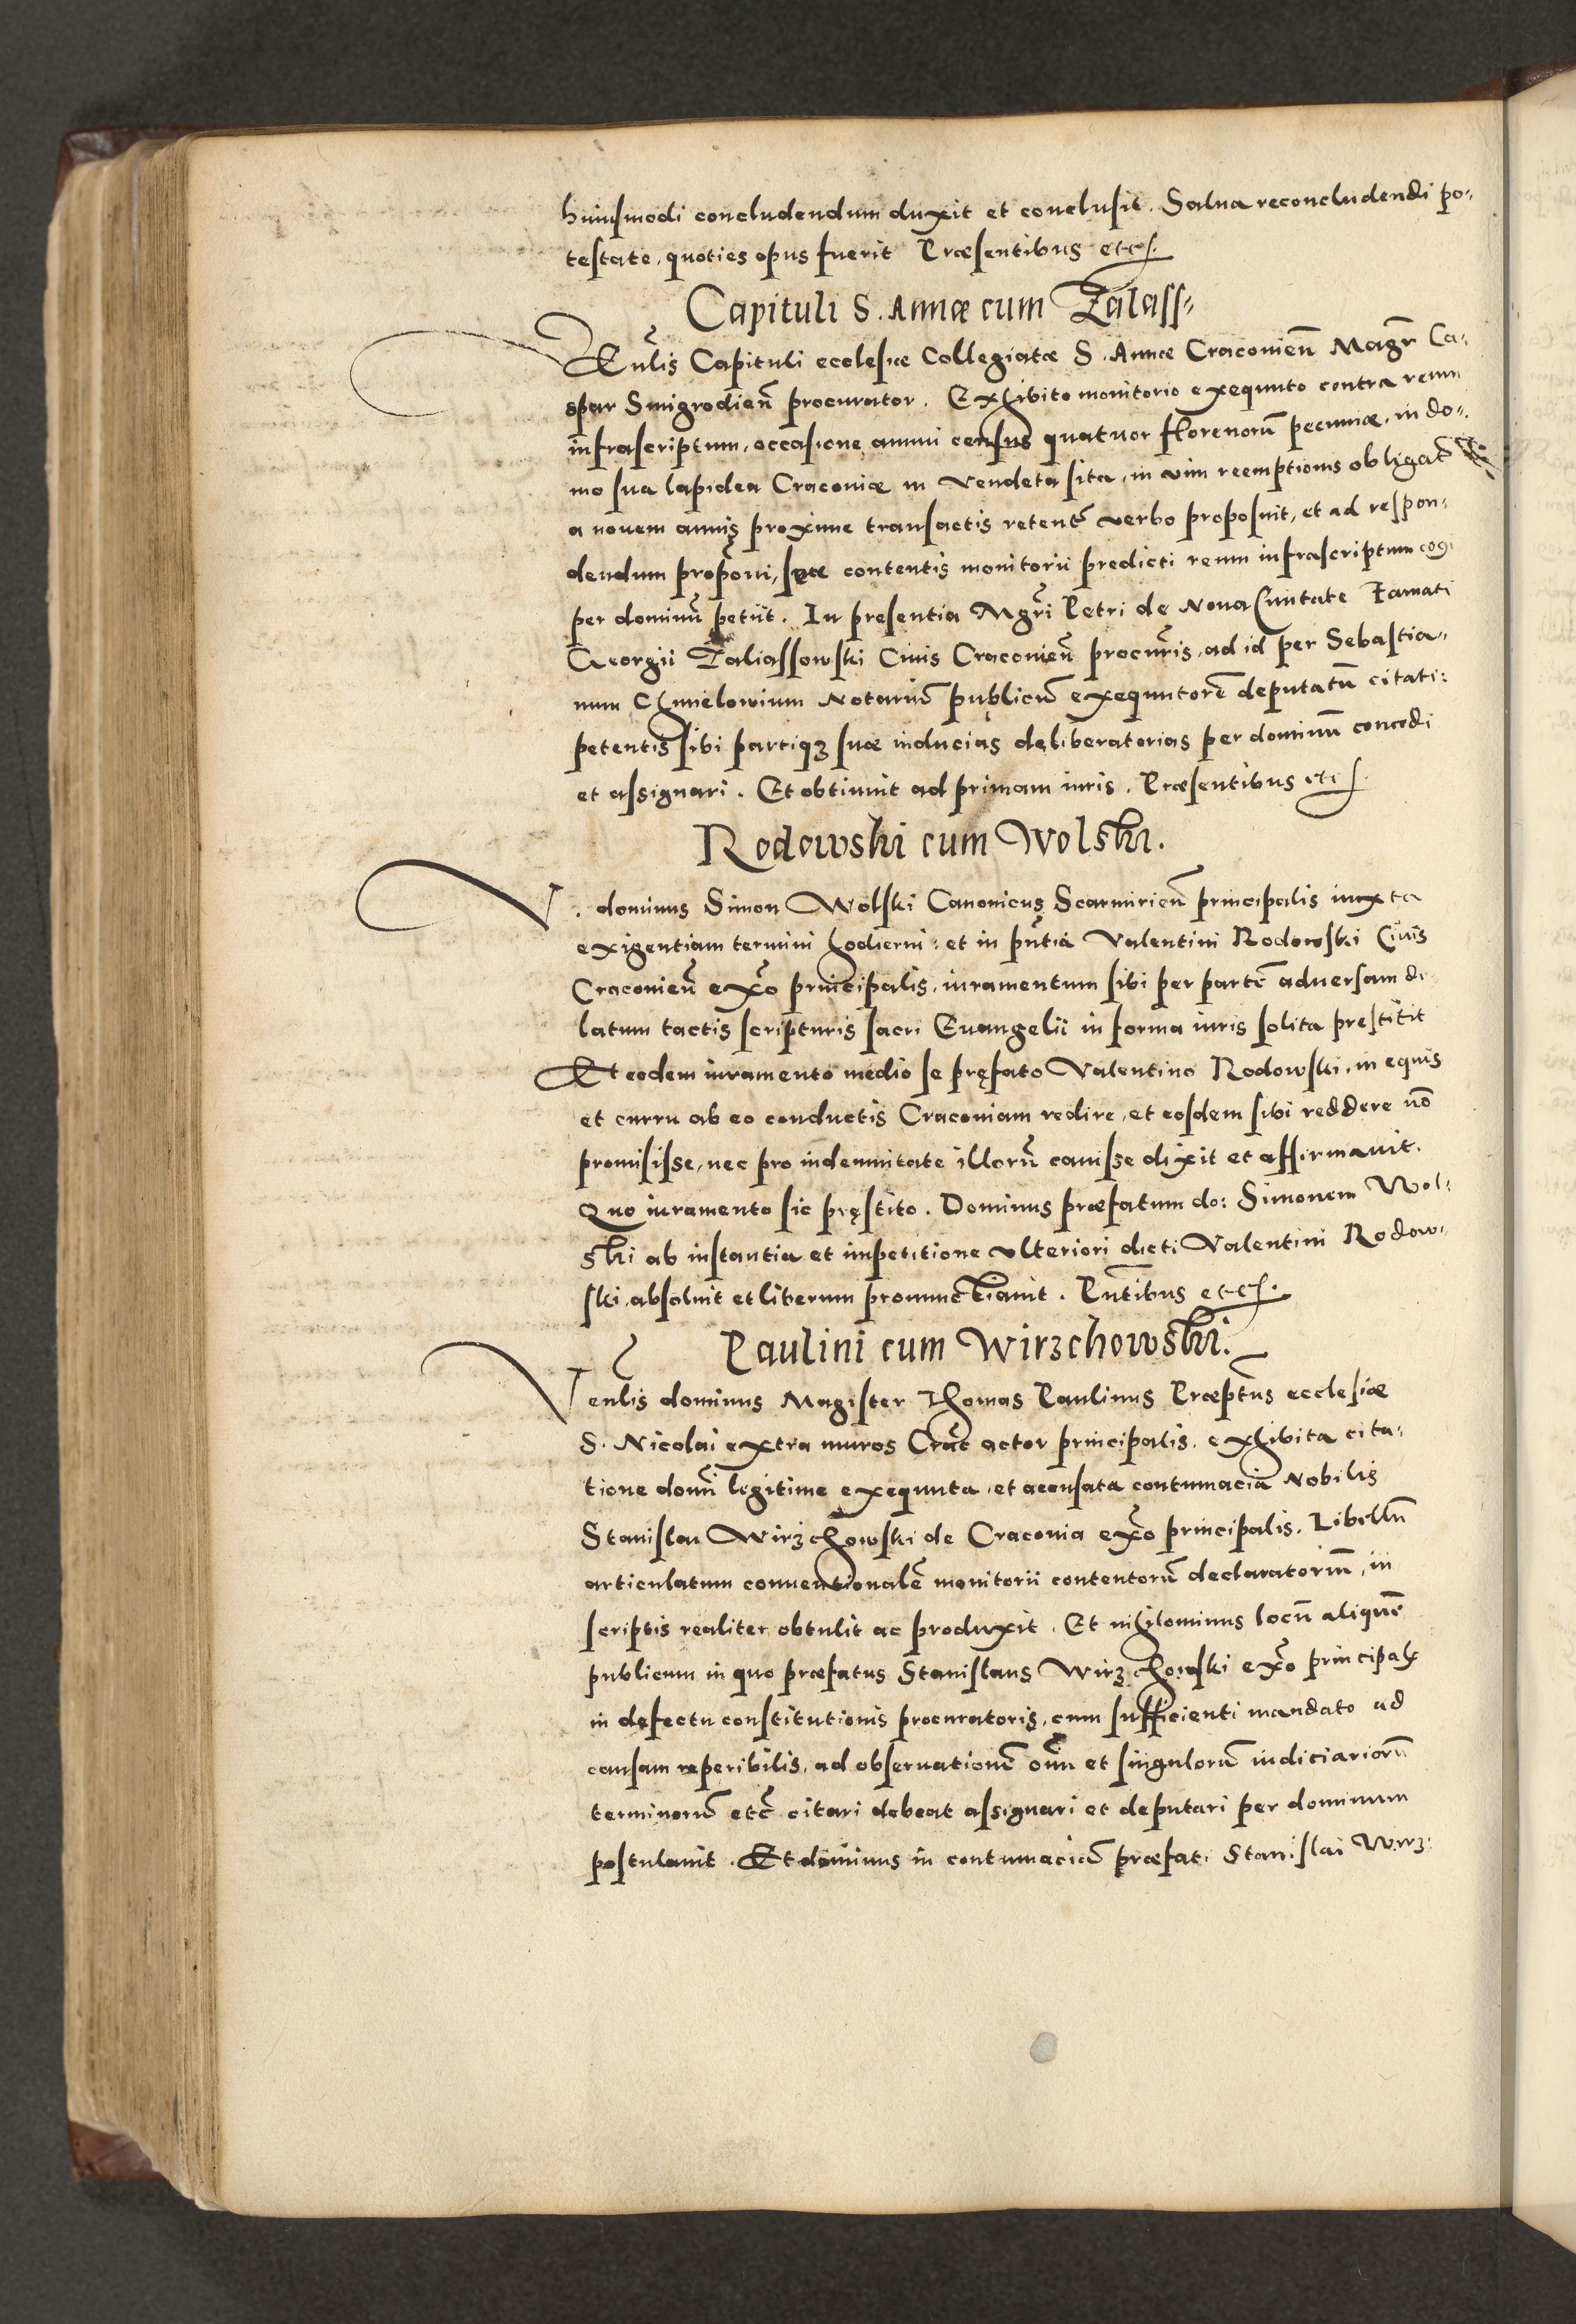 huiusmodi concludendum duxit et conclusit. Salua reconcludendi po-
testate, quoties opus fuerit Præsentibus etc.
Capituli S. Annæ cum Zalass-
Venlis Capituli ecclesiæ Collegiatæ S. Annæ Craconien̄ Magr̄ Ca-
spar Smigrodien̄ procurator. Exhibito monitorio exequuto contra reum
infrascriptum, occasione annui census quatuor florenorū pecuniæ, in do-
mo sua lapidea Craconiæ in Vendeta sita, in vim reemptionis obligat̄
a nouem annis proxime transactis retent̄ verbo proposuit, et ad respon-
dendum propōni, siue contentis monitorii predicti reum infrascriptum cogi
per dominū petiit. In presentia Mgr̄i Petri de Noua Ciuitate Famati
Georgii Zaliassowski Ciuis Craconien̄ procur̄is, ad id per Sebastia-
num Chmielowium Notariū publicū exequutorē deputatū citati:
petentis sibi partiqȝ suæ inducias deliberatorias per dominū concedi
et assignari. Et obtinuit ad primam iuris. Præsentibus etc
Rodowski cum Wolski.
V. dominus Simon Wolski Canonicus Scarmirien̄ principalis iuxta
exigentiam termini hodierni: et in pn̄tia Valentini Rodowski Ciuis
Craconien̄ ex̄o principalis, iuramentum sibi per partē aduersam de
latum tactis scripturis sacri Euangelii in forma iuris solita prestitit
Et eodem iuramento medio se pręfato Valentino Rodowski, in equis
et curru ab eo conductis Craconiam redire, et eosdem sibi reddere nō
promisisse, nec pro indemnitate illorū cauisse dixit et affirmauit.
Quo iuramento sic pręstito. Dominus præfatum do: Simonem Wol-
ski ab instantia et impetitione vlteriori dicti Valentini Rodow-
ski, absoluit et liberum pronunctiauit. Pn̄tibus etc.
Paulini cum Wirzchowski.
Venlis dominus Magister Thomas Paulinus Præptus ecclesiæ
S. Nicolai extra muros Crac̄ actor principalis, exhibita cita-
tione domī legitime exequuta, et accusata contumacia Nobilis
Stanislai Wirzchowski de Craconia ex̄o principalis. Libellū
articulatum conuentionalē monitorii contentorū declaratoriū, in
scriptis realiter obtulit ac produxit. Et nihilominus locū aliquē
publicum in quo præfatus Stanislaus Wirzchowski ex̄o principalꝭ
in defectu constitutionis procuratoris, cum sufficienti mandato ad
causam reperibilis, ad obseruationē om̄iū et singulorū iudiciariorū
terminorū etc̄ citari debeat assignari et deputari per dominum
postulauit. Et dominus in contumaciā præfati Stanislai Wirz-